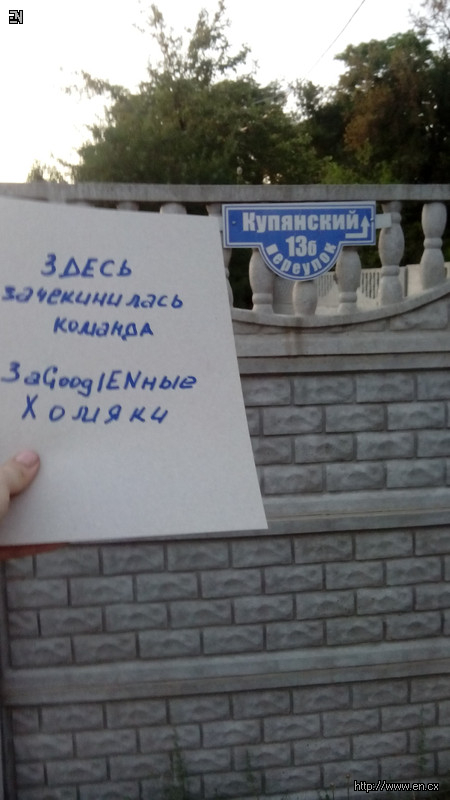 EN
Купянский
13б
переулок
ЗДЕСЬ
зачекинилась
команда
ЗаGooglENные
Хомяки
http://www.en.cx